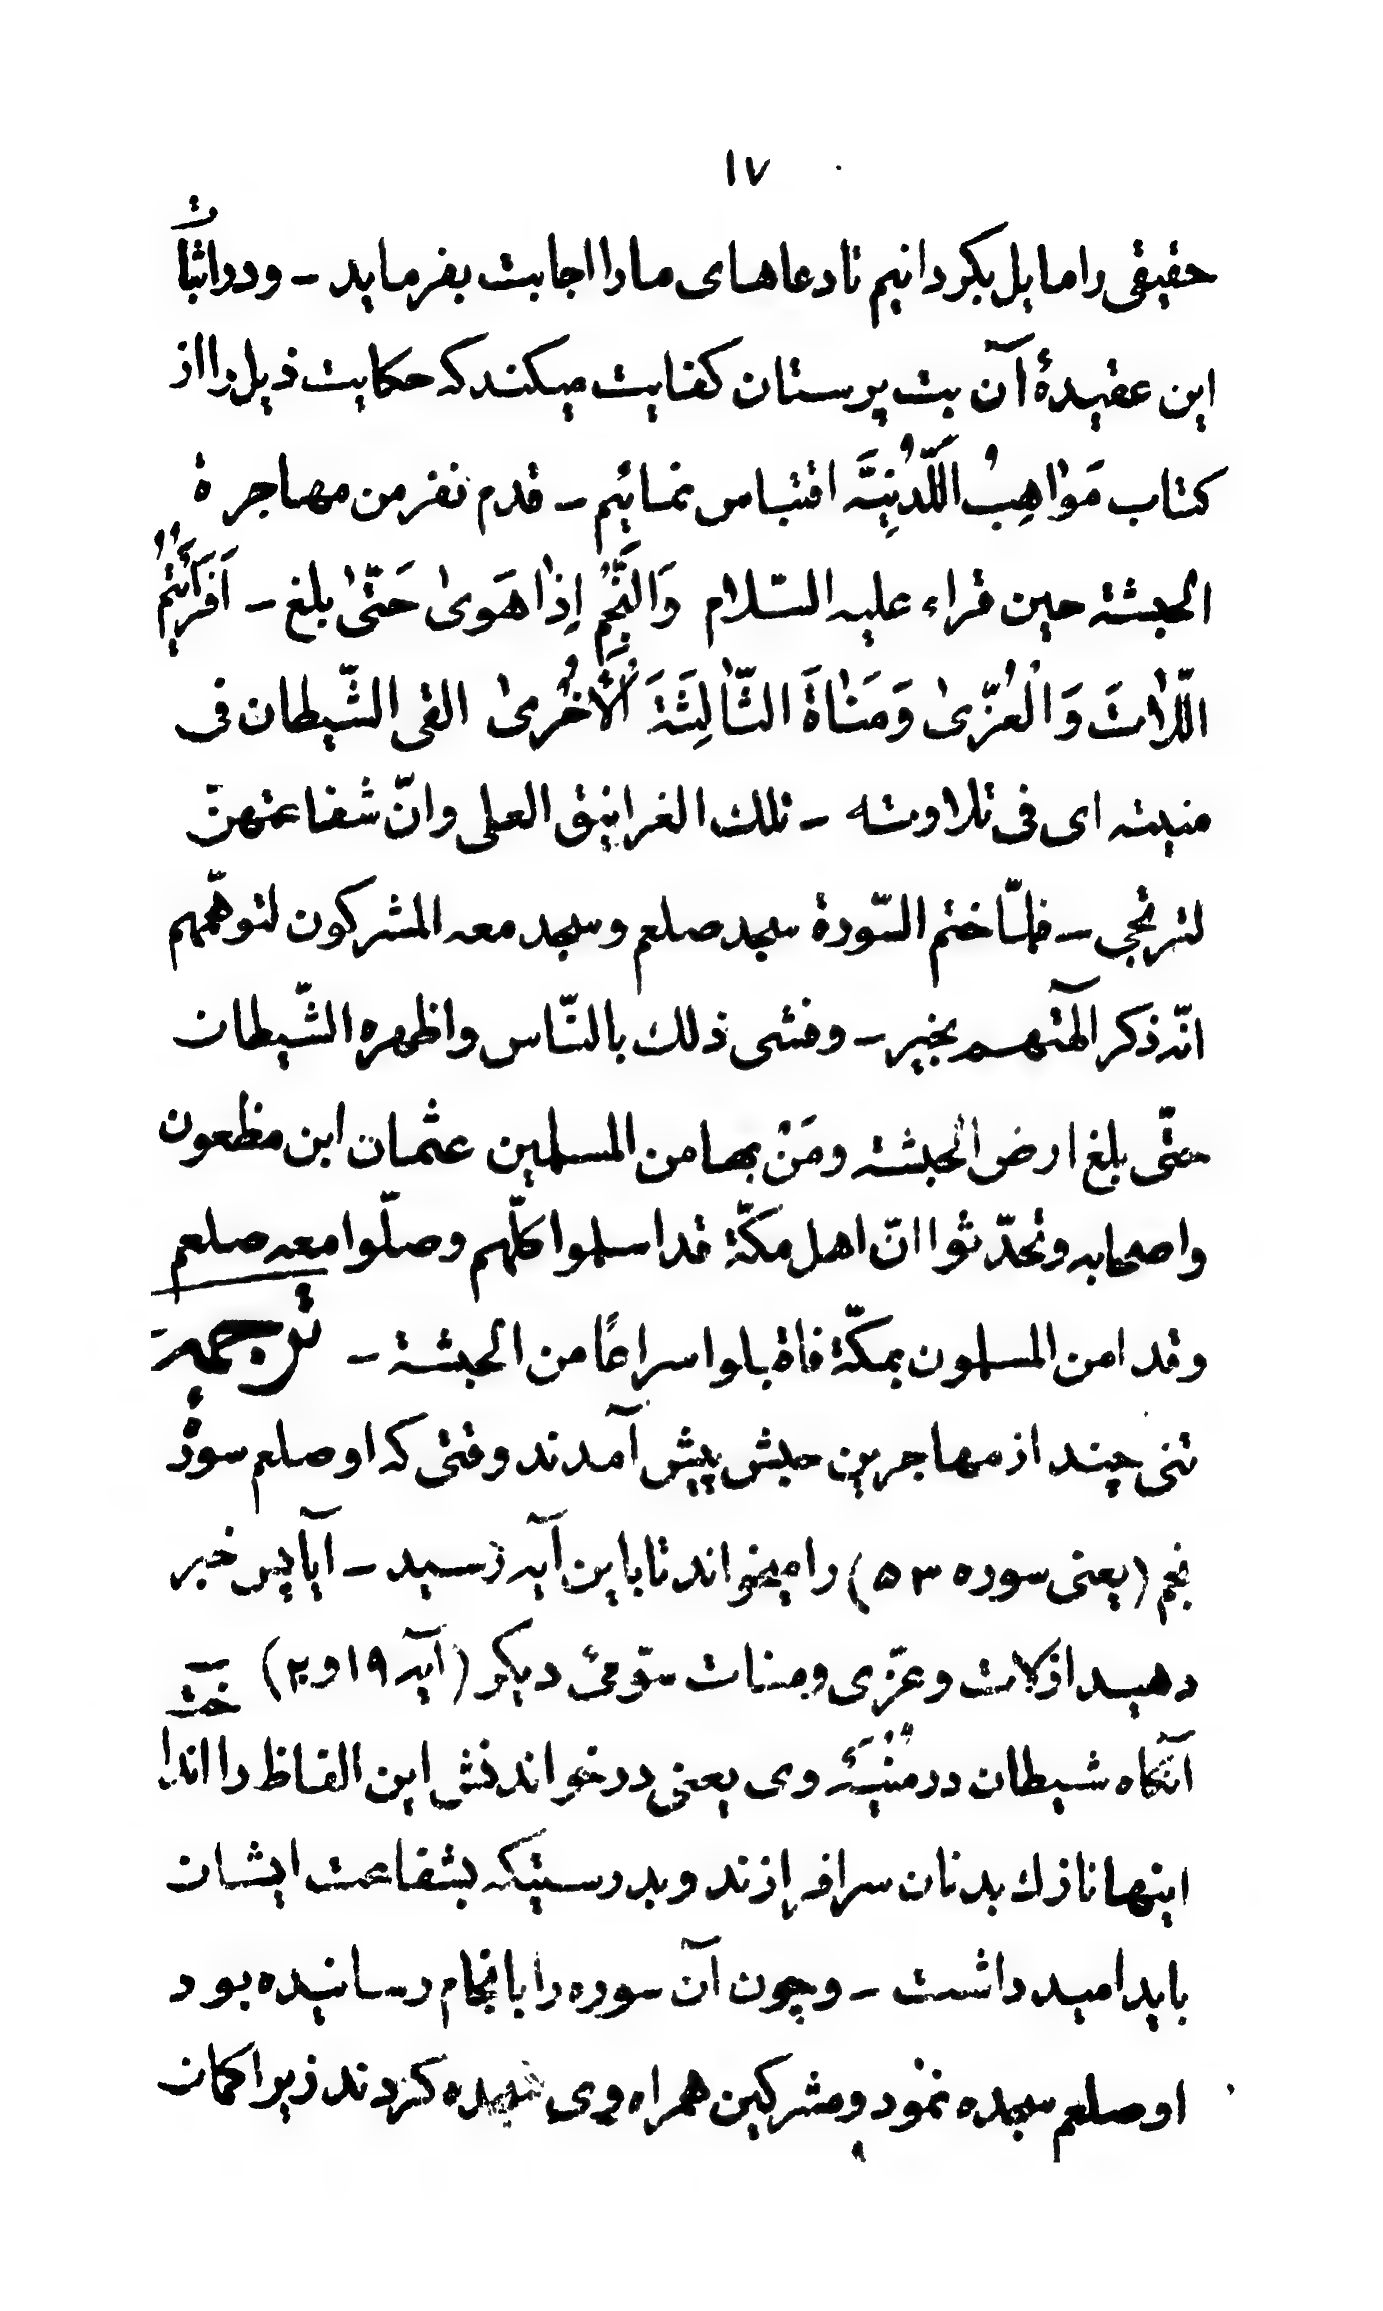 ۱۷
حقیقی را مایل بگردانیم تا دعاهای ما را اجابت بفرماید – و در اثبات
این عقیدهٔ آن بت پرستان کفایت میکند که حکایت ذیل را از
کتاب مَوٰاهِبُ اللَّدُنِیَّه اقتباس نمائیم – قدم نفر من مهاجرة
الحبشة حین قراء علیه السّلام وَالنَّجْمِ إِذٰا هَوىٰ حَتّىٰ بلغ – اَفَرَأَیْتُمُ
اللّاٰتَ وَالْعُزّىٰ وَمَنٰاةَ الثّٰالِثَةَ الْأُخْرىٰ القی الشّیطان فی
منیته ای فی تلاوته – تلك الغرانیق العلی وانّ شفاعتهنّ
لترتجی – فلمّا ختم السّورة سجد صلعم وسجد معه المشركون لتوهّمهم
انّه ذكر آلهتهم بخیر – وفشی ذلك بالنّاس واظهره الشّیطان
حتّی بلغ ارض الحبشة ومَنْ بها من المسلمین عثمان ابن مظعون
واصحابه وتحدّثوا انّ اهل مكّة قد اسلموا كلّهم وصلّوا معه صلعم
وقد امن المسلمون بمكّة فاقبلوا سراعًا من الحبشة – ترجمه
تنی چند از مهاجرین حبش پیش آمدند وقتی که او صلعم سورهٔ
نجم (یعنی سوره ۵۳) را میخواند تا باین آیه رسید – آیا پس خبر
دهید از لات و عزّی و منات سوّمیٔ دیگر (آیه ۱۹ و ۲۰)
آنگاه شیطان در مُنْیَهٔ وی یعنی در خواندنش این الفاظ را انداخت
اینها نازك بدنان سرافرازند و بدرستیکه بشفاعت ایشان
باید امید داشت – و چون آن سوره را بانجام رسانیده بود
او صلعم سجده نمود و مشرکین همراه وی سجده کردند زیرا گمان